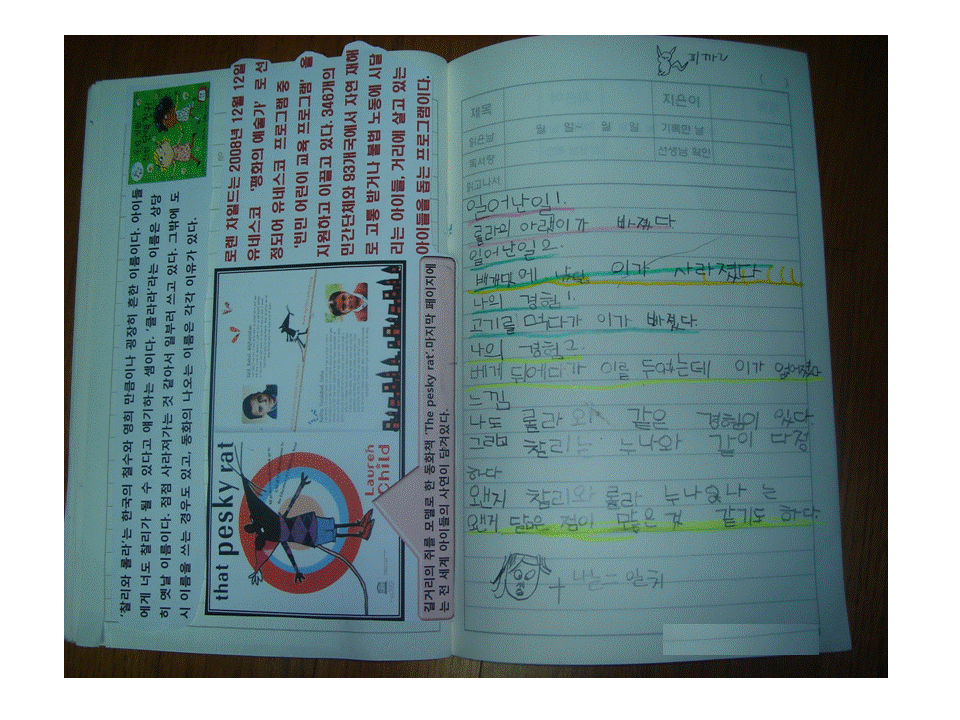 '찰리와 롤라'는 한국의 철수와 영희 만큼이나 굉장히 흔한 이름이다. 아이들
에게 너도 찰리가 될 수 있다고 얘기하는 셈이다. '클라라'라는 이름은 상당
히 옛날 이름이다. 점점 사라져가는 것 같아서 일부러 쓰고 있다. 그밖에 도
시 이름을 쓰는 경우도 있고, 동화의 나오는 이름은 각각 이유가 있다.
로렌 차일드는 2008년 12월 12일
유네스코 '평화의 예술가' 로 선
정되어 유네스코 프로그램 중
'빈민 어린이 교육 프로그램' 을
지원하고 이끌고 있다. 346개의
민간단체와 93개국에서 자연 재해
로 고통 받거나 불법 노동에 시달
리는 아이들, 거리에 살고 있는
아이들을 돕는 프로그램이다.
that pesky rat
Lauren
Child
길거리의 쥐를 모델로 한 동화책 'The pesky rat'.마지막 페이지에
는 전 세계 아이들의 사연이 담겨있다.
피까츄
( )
제목
지은이
읽은날
월 일~ 월 일
기록한 날
독서량
선생님 확인
읽고나서
일어난일1.
롤라의 아랫이가 빠졌다
일어난일2.
베개밑에 이가 사라졌다
나의 경험1
고기를 먹다가 이가 빠졌다.
나의 경험2.
베게 뒤에다가 이를 두었는데 이가 없어졌다
느낌
나도 롤라와 같은 경험이 있다
그리고 찰리는 누나와 같이 다정
하다
왠지 찰리와 롤라 누나와 나는
왠지 닮은 점이 많은 것 같기도 하다.